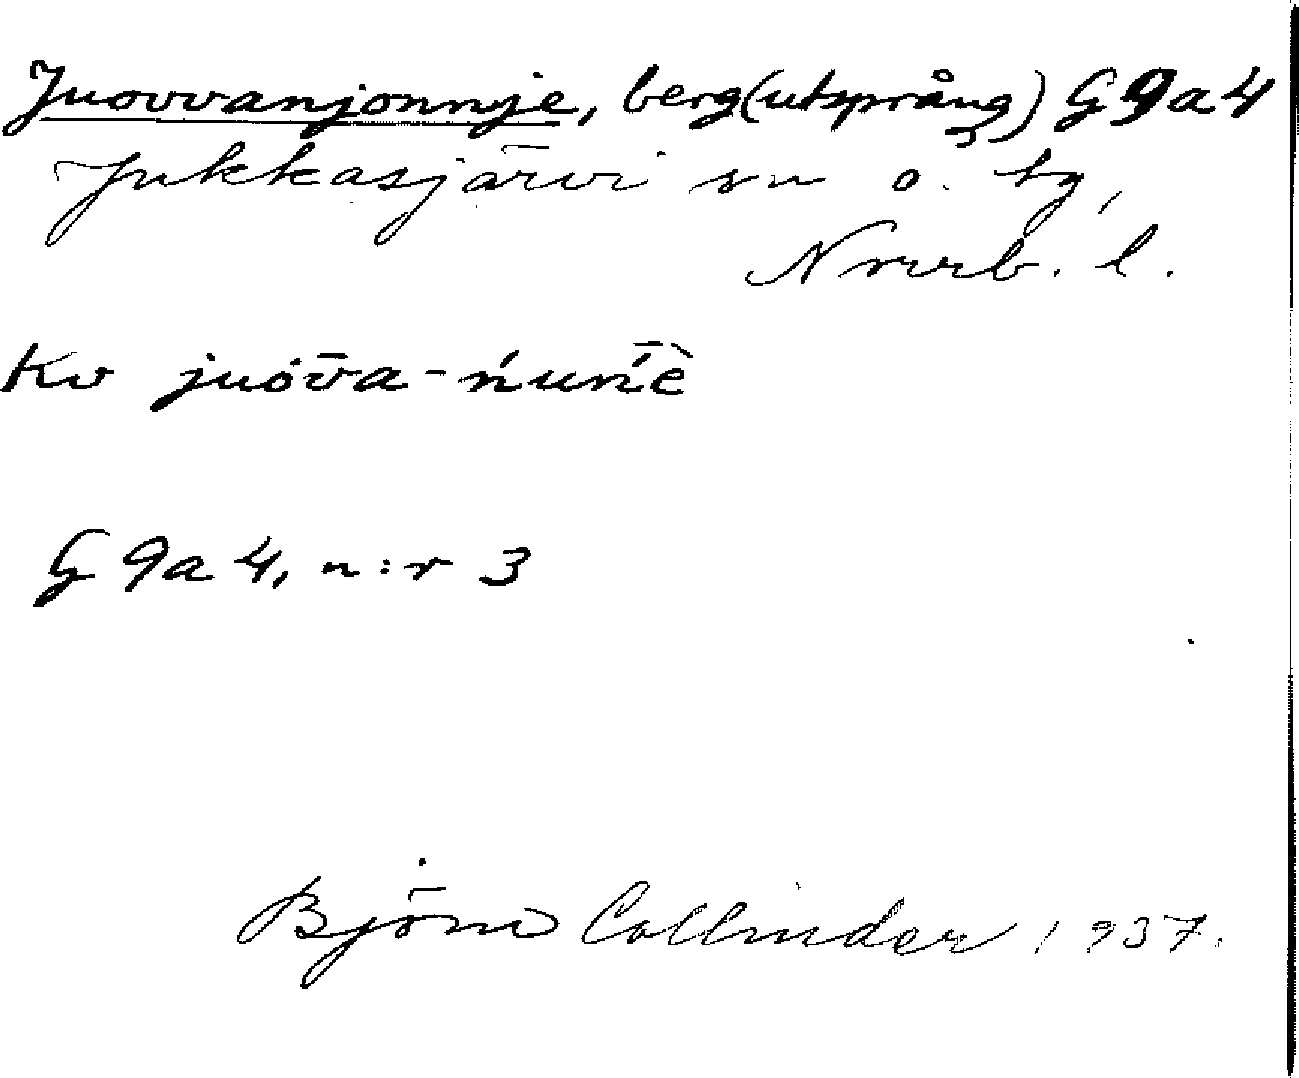 Juovvanjonnje, berg(utsprång) G 9a4
Jukkasjärvi sn o. tg,
Nrrb. l.
Kv juȯv̄a-ńuńi̅è
G 9a 4, n:r 3
Björn Collinder 1937.